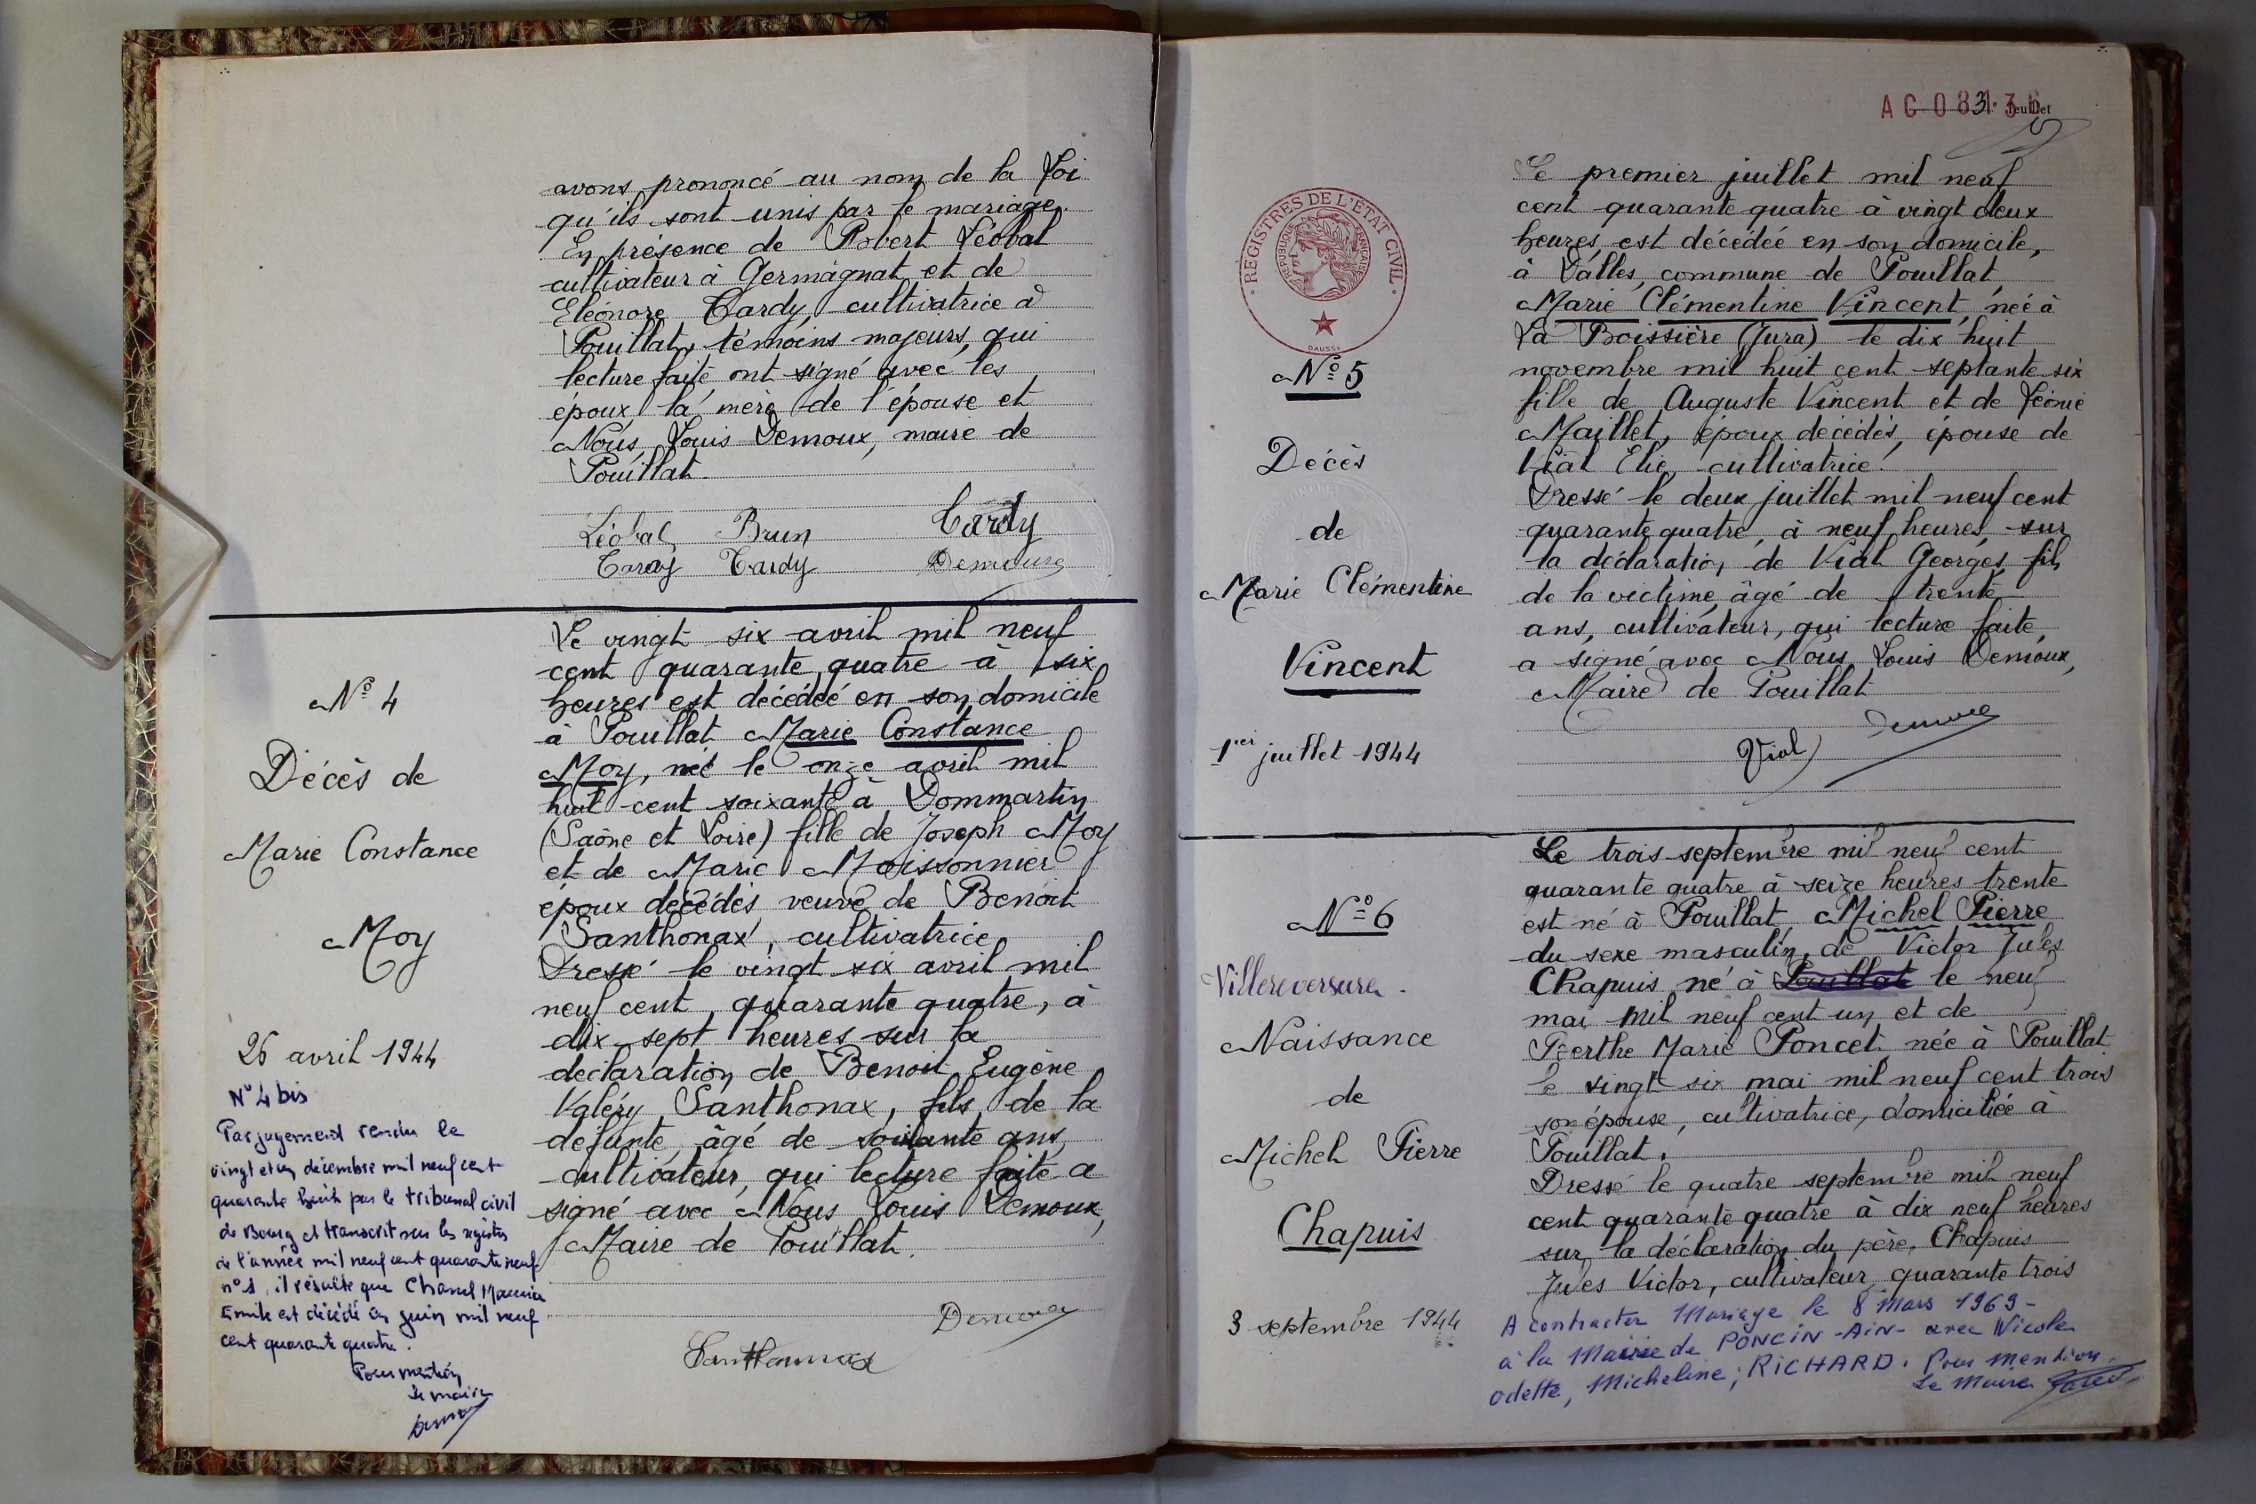 avons prononcé au nom de la Loi
qu'ils sont unis par le mariage.
En présence de Robert Léobal
cultivateur à Germagnat et de
Eléonore Tardy, cultivatrice à
Pouillat, témoins majeurs, qui
lecture faite ont signé avec les
époux, la mère de l'épouse et
Nous, Louis Demoux, maire de
Pouillat.
Léobal Brun Tardy
Tardy Tardy Demoux
N° 4
Décès de
Marie Constance
Moy
26 avril 1944
Le vingt six avril mil neuf
cent quarante quatre à six
heures est décédée en son domicile
à Pouillat Marie Constance
Moy, née le onze avril mil
huit cent soixante à Dommartin
(Saône et Loire) fille de Joseph Moy
et de Marie Moissonnier
époux décédés veuve de Benoit
Santhonax, cultivatrice
Dressé le vingt six avril mil
neuf cent quarante quatre, à
dix sept heures sur la
déclaration de Benoit Eugène
Valéry Santhonax, fils de la
défunte, âgé de soixante ans,
cultivateur, qui lecture faite a
signé avec Nous Louis Demoux,
Maire de Pouillat.
Demoux
Santhonnax
N° 4 bis
Par jugement rendu le
vingt et un décembre mil neuf cent
quarante huit par le tribunal civil
de Bourg et transcrit sur les registres
de l'année mil neuf cent quarante neuf
n° 1, il résulte que Chanel Maurice
Emile est décédé en juin mil neuf
cent quarante quatre.
Pour mention
Le maire
Demoux
3e feuillet
REGISTRES DE L'ETAT CIVIL
REPUBLIQUE FRANÇAISE
N° 5
Décès
de
Marie Clémentine
Vincent
1er juillet 1944
Le premier juillet mil neuf
cent quarante quatre à vingt deux
heures, est décédée en son domicile,
à Dalles, commune de Pouillat
Marie Clémentine Vincent, née à
La Boissière (Jura) le dix huit
novembre mil huit cent septante six
fille de Auguste Vincent et de Léonie
Maillet, époux décédés, épouse de
Vial Elie, cultivatrice.
Dressé le deux juillet mil neuf cent
quarante quatre, à neuf heures, sur
la déclaration de Vial Georges, fils
de la victime, âgé de trente
ans, cultivateur, qui lecture faite
a signé avec Nous Louis Demoux,
Maire de Pouillat
Vial Demoux
N° 6
Villereversure.
Naissance
de
Michel Pierre
Chapuis
3 septembre 1944
Le trois septembre mil neuf cent
quarante quatre à seize heures trente
est né à Pouillat, Michel Pierre
du sexe masculin, de Victor Jules
Chapuis né à Pouillat le neuf
mai mil neuf cent un et de
Berthe Marie Poncet née à Pouillat
le vingt six mai mil neuf cent trois
son épouse, cultivatrice, domiciliée à
Pouillat.
Dressé le quatre septembre mil neuf
cent quarante quatre à dix neuf heures
sur la déclaration du père, Chapuis
Jules Victor, cultivateur, quarante trois
A contracter Mariage le 8 Mars 1969 -
à la Mairie de PONCIN - AiN - avec Nicole
Odette, Micheline; RiCHARD. Pour mention.
Le Maire